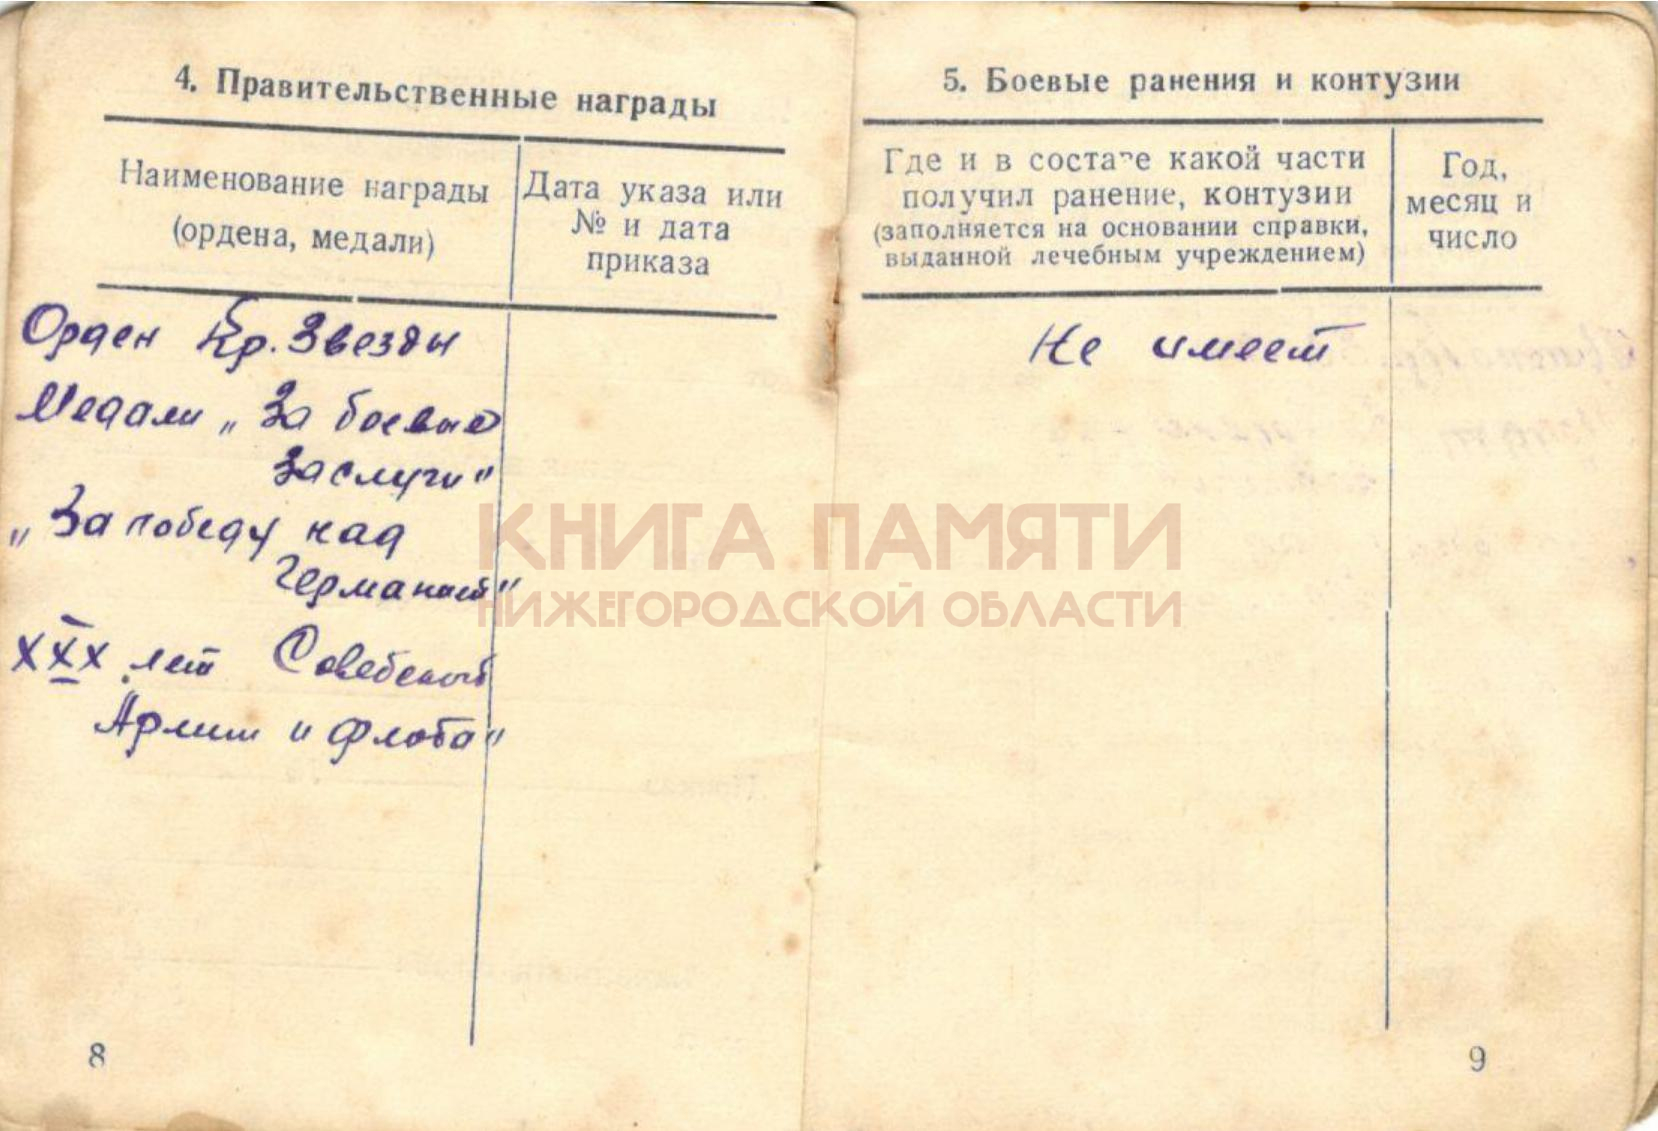 4. Правительственные награды
Наименование награды
(ордена, медали)
Дата указа или
№ и дата
приказа
Орден Кр. Звезды
Медали „За боевые
заслуги"
„За победу над
Германией"
XXX лет Советской
Армии и флота"
8
5. Боевые ранения и контузии
Где и в составе какой части
получил ранение, контузии
(заполняется на основании справки,
выданной лечебным учреждением)
Год,
месяц и
число
Не имеет
9
КНИГА ПАМЯТИ
НИЖЕГОРОДСКОЙ ОБЛАСТИ